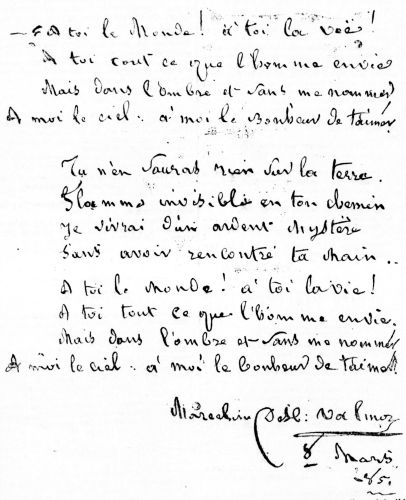 A toi le Monde! à toi la vie!
A toi tout ce que l'homme envie
Mais dans l'ombre et sans me nommer
A moi le ciel: à moi le bonheur de t'aimer
Tu n'en sauras rien sur la terre.
Flamme invisible en ton chemin
Je vivrai d'un ardent Mystère
Sans avoir rencontré ta Main..
A toi le Monde! à toi la vie!
A toi tout ce que l'homme envie.
Mais dans l'ombre et sans me nommer
A moi le ciel: à moi le bonheur de t'aimer!
Valmore
8 Mars